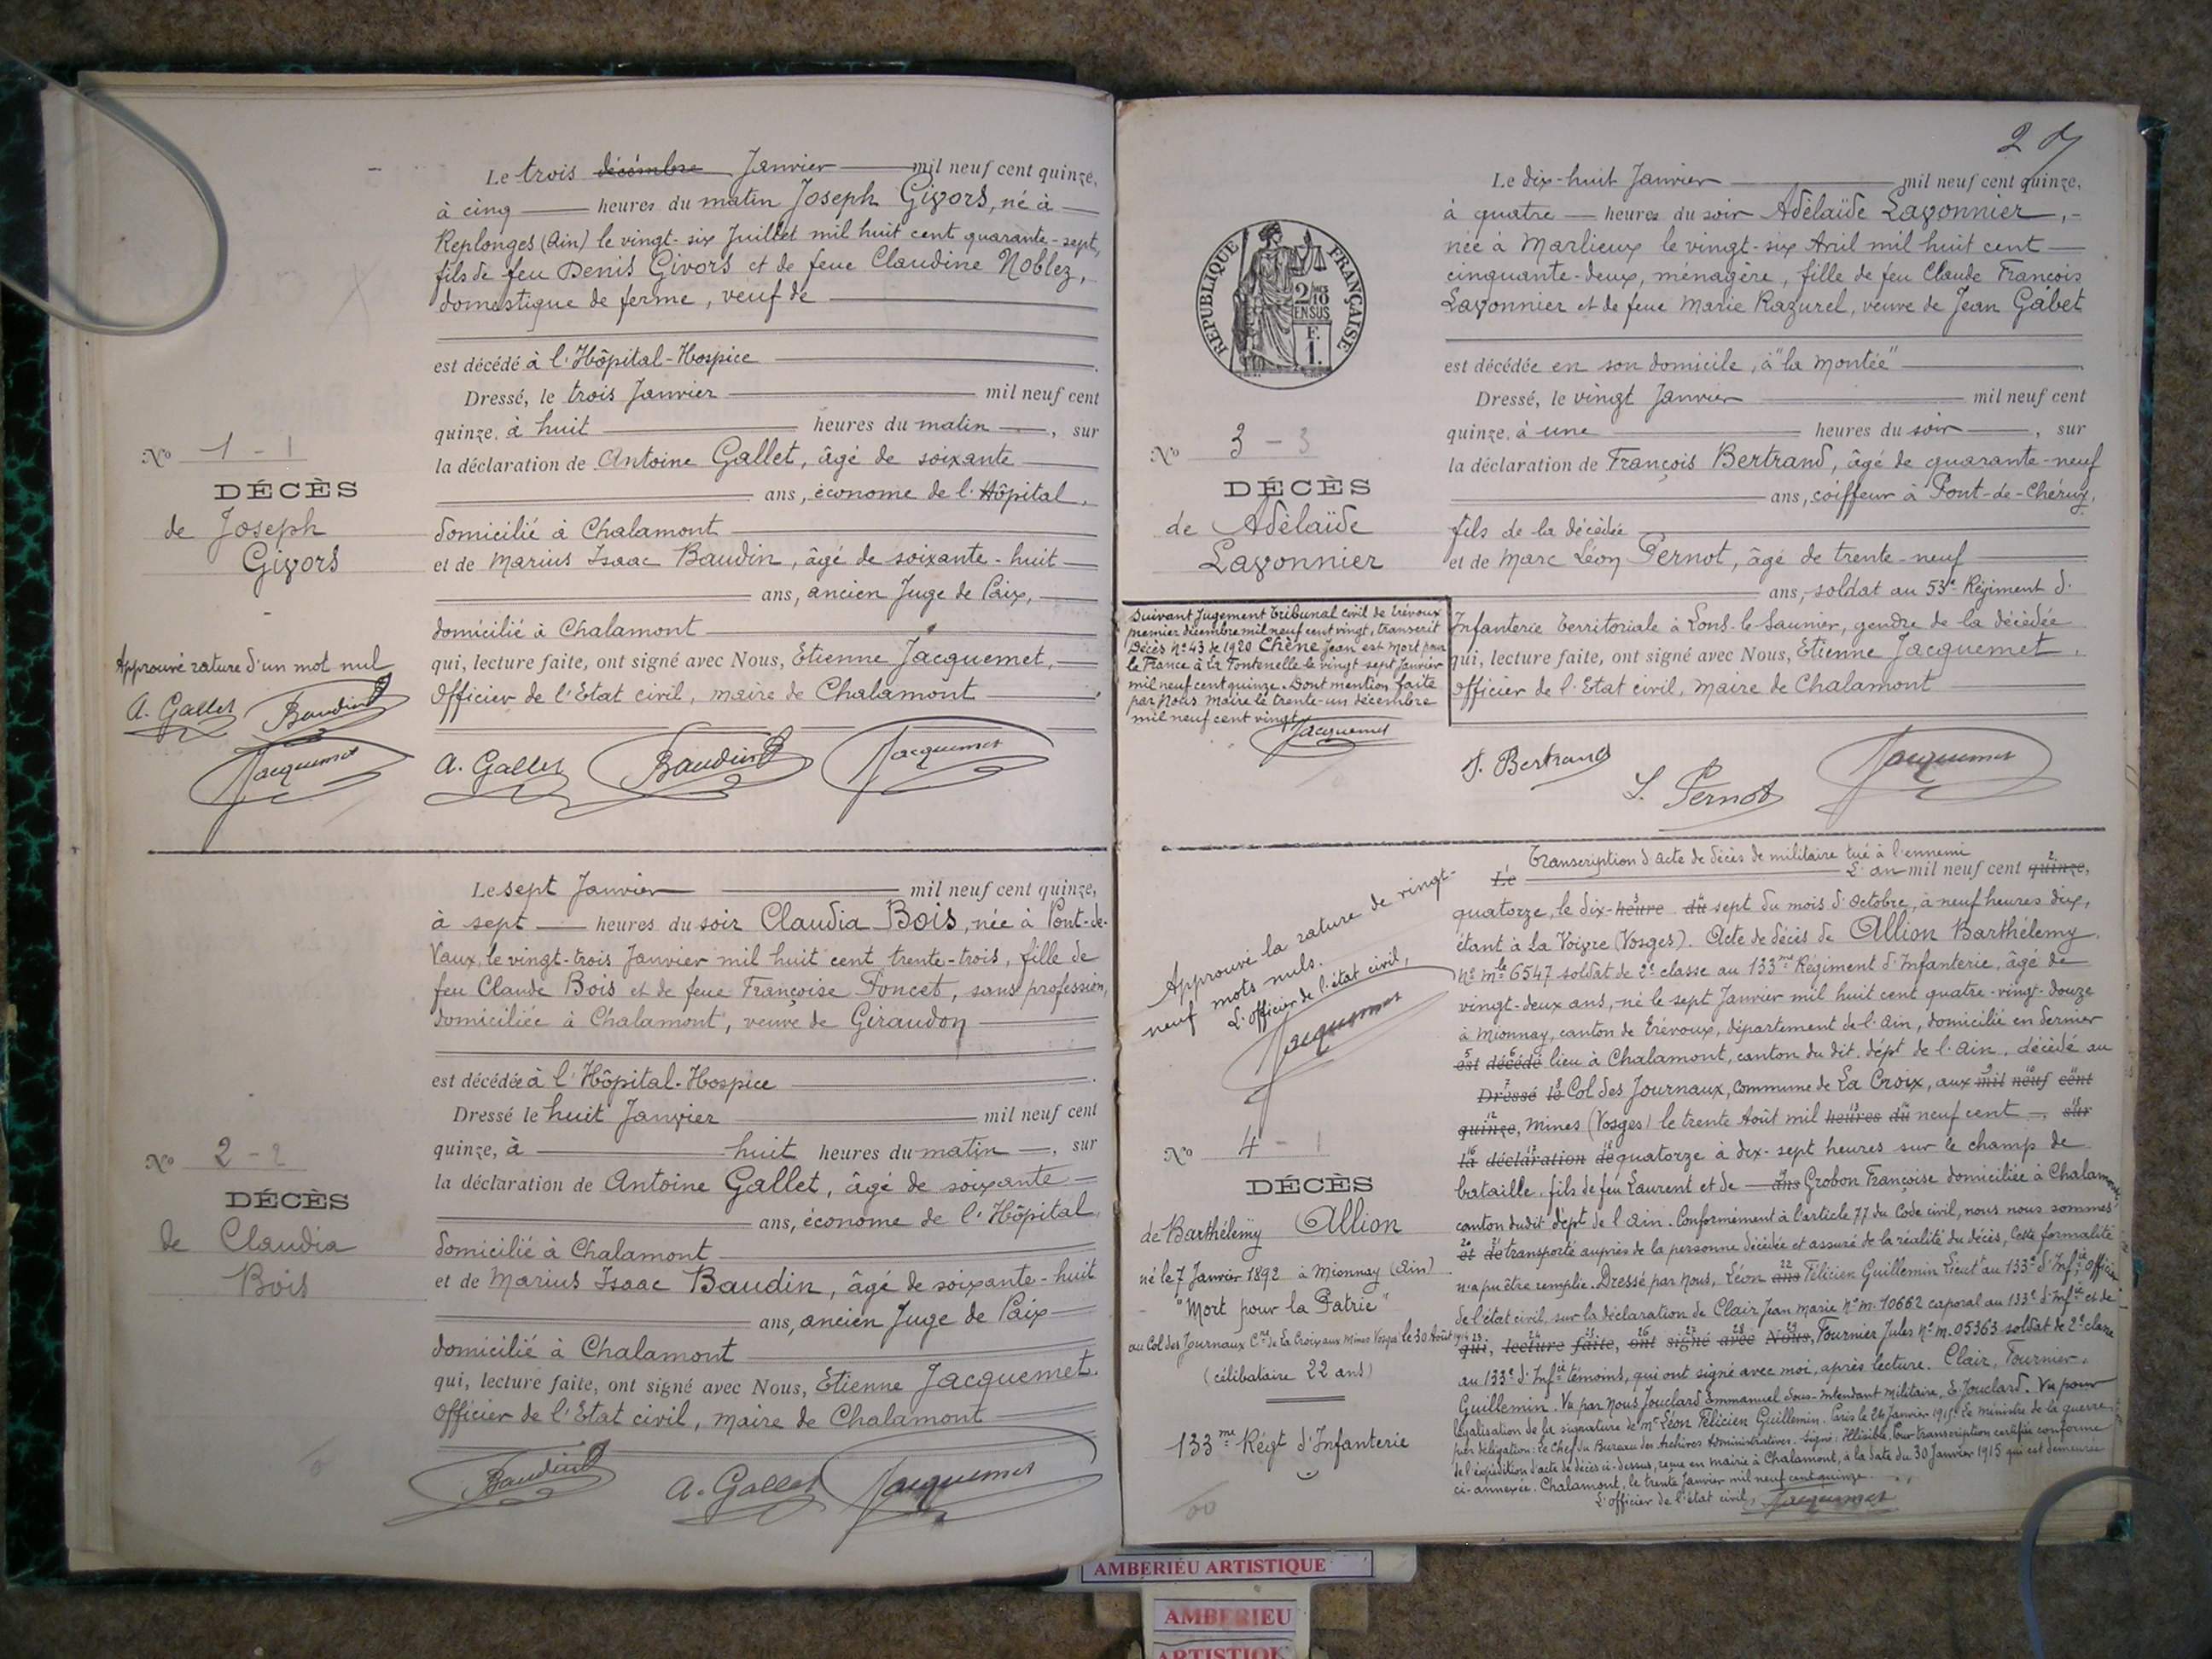 Le trois décembre Janvier mil neuf cent quinze,
à cinq heures du matin Joseph Givors, né à
Replonges (Ain) le vingt-six Juillet mil huit cent quarante-sept,
fils de feu Denis Givors et de feue Claudine Noblez,
domestique de ferme, veuf de
est décédé à l'Hôpital-Hospice
Dressé, le trois Janvier mil neuf cent
quinze, à huit heures du matin, sur
la déclaration de Antoine Gallet, âgé de soixante
ans, économe de l'Hôpital,
domicilié à Chalamont
et de Marius Isaac Baudin, âgé de soixante-huit
ans, ancien Juge de Paix,
domicilié à Chalamont
qui, lecture faite, ont signé avec Nous, Etienne Jacquemet,
Officier de l'Etat civil, maire de Chalamont
A. Gallet Baudin Jacquemet
No 1 - 1
DÉCÈS
de Joseph
Givors
Approuvé rature d'un mot nul
A. Gallet Baudin
Jacquemet
Le sept Janvier mil neuf cent quinze,
à sept heures du soir Claudia Bois, née à Pont-de-
Vaux, le vingt-trois Janvier mil huit cent trente-trois, fille de
feu Claude Bois et de feue Françoise Poncet, sans profession,
domiciliée à Chalamont, veuve de Giraudon
est décédée à l'Hôpital-Hospice
Dressé le huit Janvier mil neuf cent
quinze, à huit heures du matin, sur
la déclaration de Antoine Gallet, âgé de soixante
ans, économe de l'Hôpital,
domicilié à Chalamont
et de Marius Isaac Baudin, âgé de soixante-huit
ans, ancien Juge de Paix
domicilié à Chalamont
qui, lecture faite, ont signé avec Nous, Etienne Jacquemet.
Officier de l'Etat civil, maire de Chalamont
Baudin A. Gallet Jacquemet
No 2 - 2
DÉCÈS
de Claudia
Bois
2
RÉPUBLIQUE FRANÇAISE
2/10
EN SUS
F.
1.
Le dix-huit Janvier mil neuf cent quinze,
à quatre heures du soir Adélaïde Lavonnier,
née à Marlieux le vingt-six Avril mil huit cent
cinquante-deux, ménagère, fille de feu Claude François
Lavonnier et de feue Marie Razurel, veuve de Jean Gabet
est décédée en son domicile, à "la Montée"
Dressé, le vingt Janvier mil neuf cent
quinze, à une heures du soir, sur
la déclaration de François Bertrand, âgé de quarante-neuf
ans, coiffeur à Pont-de-Chéruy,
fils de la décédée
et de Marc Léon Pernot, âgé de trente-neuf
ans, soldat au 53e Régiment d'
Infanterie territoriale à Lons-le-Saunier, gendre de la décédée
qui, lecture faite, ont signé avec Nous, Etienne Jacquemet,
Officier de l'Etat civil, maire de Chalamont
F. Bertrand L. Pernot Jacquemet
No 3 - 3
DÉCÈS
de Adélaïde
Lavonnier
Suivant Jugement Tribunal civil de Trévoux
premier décembre mil neuf cent vingt, transcrit
Décès No 43 de 1920 Chêne Jean est mort pour
la France à La Fontenelle le vingt sept Janvier
mil neuf cent quinze. Dont mention faite
par Nous Maire le trente-un décembre
mil neuf cent vingt
Jacquemet
Transcription d'acte de décès de militaire tué à l'ennemi
Le L'an mil neuf cent quinze,
quatorze, le dix-heure du sept du mois d'octobre, à neuf heures dix,
étant à La Voivre (Vosges). Acte de décès de Allion Barthélemy
No mle 6547 soldat de 2e classe au 133me Régiment d'Infanterie, âgé de
vingt-deux ans, né le sept Janvier mil huit cent quatre-vingt-douze
à Mionnay, canton de Trévoux, département de l'Ain, domicilié en dernier
est décédé lieu à Chalamont, canton du dit, dépt de l'Ain, décédé au
Dressé le Col des Journaux, commune de La Croix, aux mil neuf cent
quinze, Mines (Vosges) le trente Août mil heures du neuf cent, sur
la déclaration de quatorze à dix-sept heures sur le champ de
bataille, fils de feu Laurent et de ans Grobon Françoise domiciliée à Chalamont,
canton dudit dépt de l'Ain. Conformément à l'article 77 du Code civil, nous nous sommes
et de transporté auprès de la personne décédée et assuré de la réalité du décès, Cette formalité
n'a pu être remplie. Dressé par Nous, Léon ans Félicien Guillemin Lieutt au 133e d'Infie Officier
de l'état civil, sur la déclaration de Clair Jean Marie No m. 10662 caporal au 133e d'Infie et de
qui, lecture faite, ont signé avec Nous, Fournier Jules No m. 05363 soldat de 2e classe
au 133e d'Infie témoins, qui ont signé avec moi, après lecture. Clair, Fournier,
Guillemin. Vu par Nous Jouclard Emmanuel Sous-Intendant Militaire, E. Jouclard. Vu pour
légalisation de la signature de Mr Léon Félicien Guillemin. Paris le 24 Janvier 1915. Le Ministre de la guerre
par délégation: Le Chef du Bureau des Archives Administratives. Signé: Illisible. Pour transcription certifiée conforme
de l'expédition d'acte de décès ci-dessus, reçue en mairie à Chalamont, à la date du 30 Janvier 1915 qui est demeurée
ci-annexée. Chalamont, le trente Janvier mil neuf cent quinze.
L'officier de l'état civil, Jacquemet
Approuvé la rature de vingt-
neuf mots nuls.
L'officier de l'état civil,
Jacquemet
No 4 - 1
DÉCÈS
de Barthélemy Allion
né le 7 Janvier 1892 à Mionnay (Ain)
"Mort pour la Patrie"
au Col des Journaux Cne de La Croix aux Mines Vosges le 30 Août 1914
(célibataire 22 ans)
133me Régt d'Infanterie
AMBERIEU ARTISTIQUE
AMBERIEU